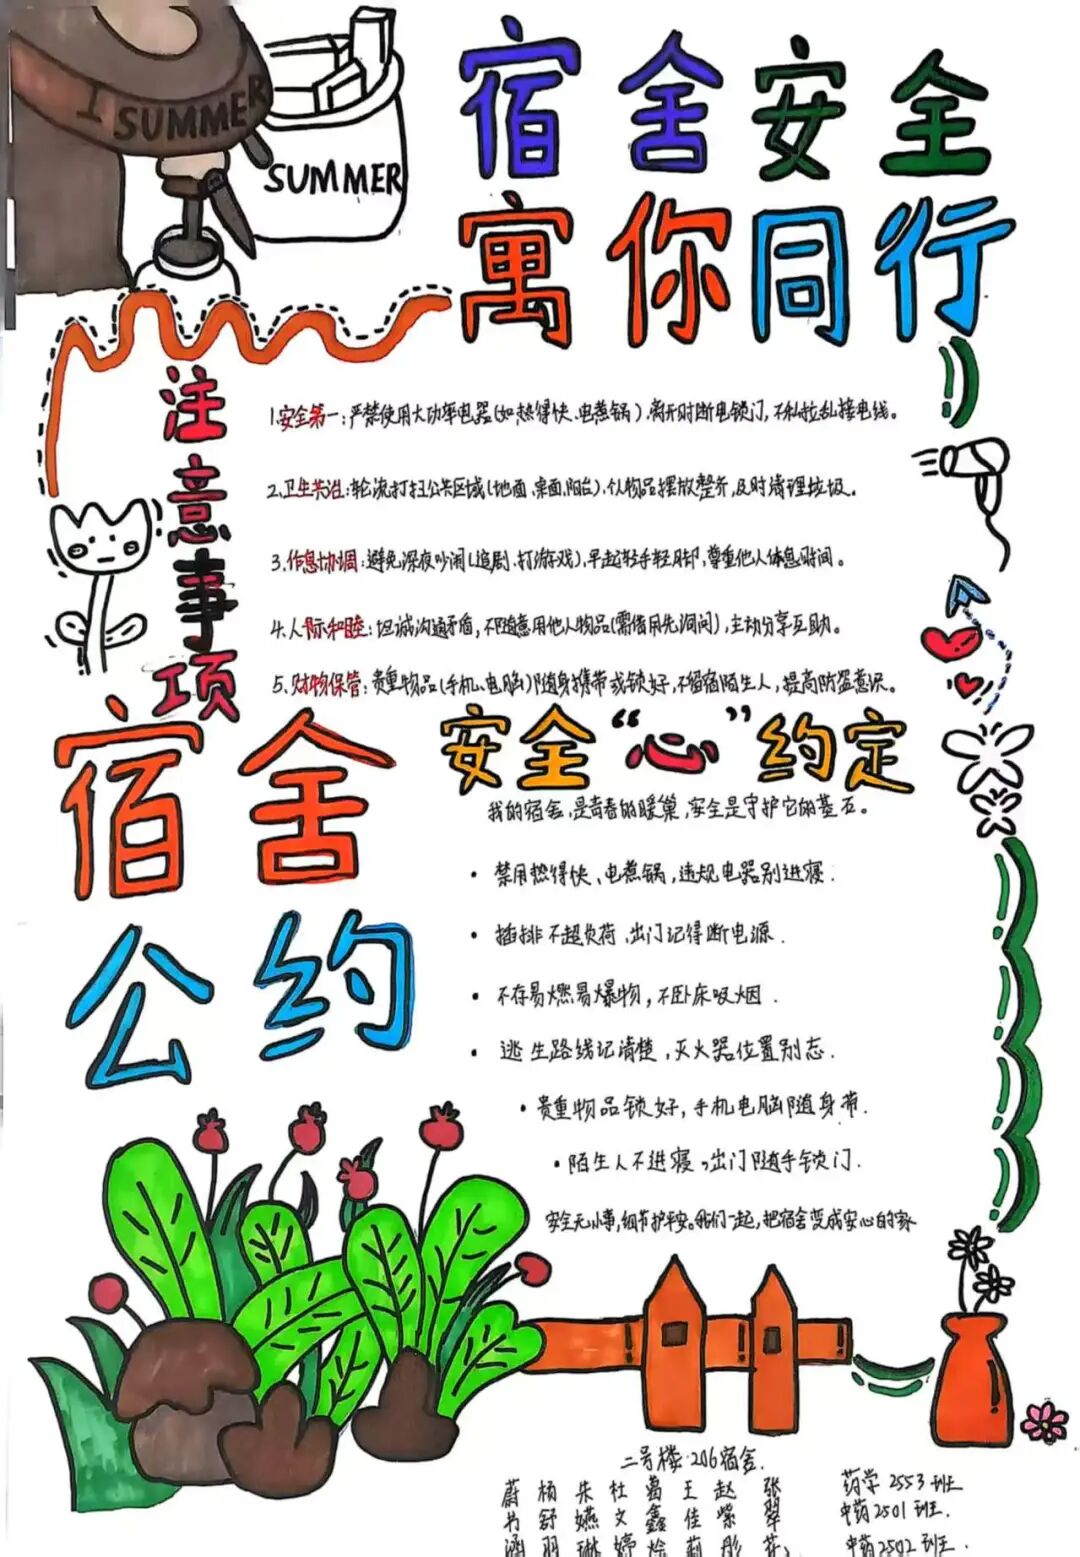 I SUMMER
SUMMER
宿舍安全
寓你同行
注意事项
1.安全第一:严禁使用大功率电器(如热得快、电煮锅),离开时断电锁门,不私拉乱接电线。
2.卫生共治:轮流打扫公共区域(地面、桌面、阳台),个人物品摆放整齐,及时清理垃圾。
3.作息协调:避免深夜吵闹(追剧、打游戏),早起轻手轻脚,尊重他人休息时间。
4.人际和睦:坦诚沟通矛盾,不随意用他人物品(需借用先询问),主动分享互助。
5.财物保管:贵重物品(手机、电脑)随身携带或锁好,不留宿陌生人,提高防盗意识。
宿舍
公约
安全“心”约定
我的宿舍,是青春的暖巢,安全是守护它的基石。
· 禁用热得快、电煮锅,违规电器别进寝.
· 插排不超负荷、出门记得断电源.
· 不存易燃易爆物,不卧床吸烟.
· 逃生路线记清楚,灭火器位置别忘.
· 贵重物品锁好,手机电脑随身带.
· 陌生人不进寝,出门随手锁门.
安全无小事,细节护平安。我们一起,把宿舍变成安心的家
二号楼·206宿舍.
蔚 杨 朱 杜 葛 王 赵 张 药学2553班
书 舒 嬿 文 鑫 佳 紫 翠 中药2501班.
涵 羽 琳 婷 莉 彤 中药2502班.